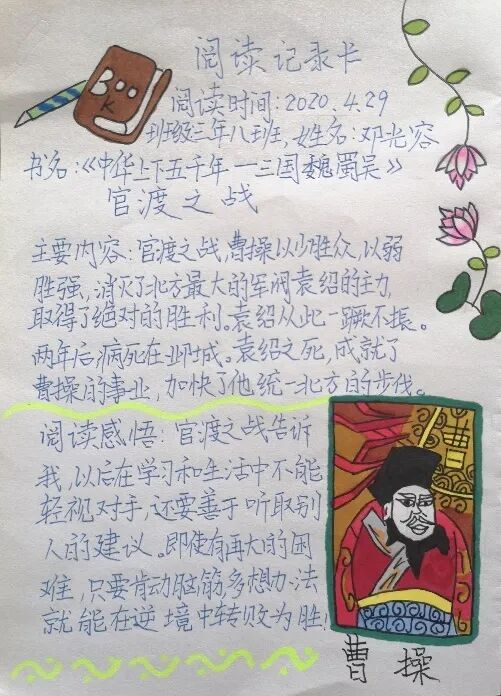 BooK
阅读记录卡
阅读时间：2020.4.29
班级三年八班，姓名：邓光容
书名：《中华上下五千年—三国魏蜀吴》
官渡之战
主要内容：官渡之战，曹操以少胜众，以弱
胜强，消灭了北方最大的军阀袁绍的主力，
取得了绝对的胜利。袁绍从此一蹶不振。
两年后，病死在邺城。袁绍之死，成就了
曹操的事业，加快了他统一北方的步伐。
阅读感悟：官渡之战告诉
我，以后在学习和生活中不能
轻视对手，还要善于听取别
人的建议。即使有再大的困
难，只要肯动脑筋多想办法
就能在逆境中转败为胜！
曹
曹操